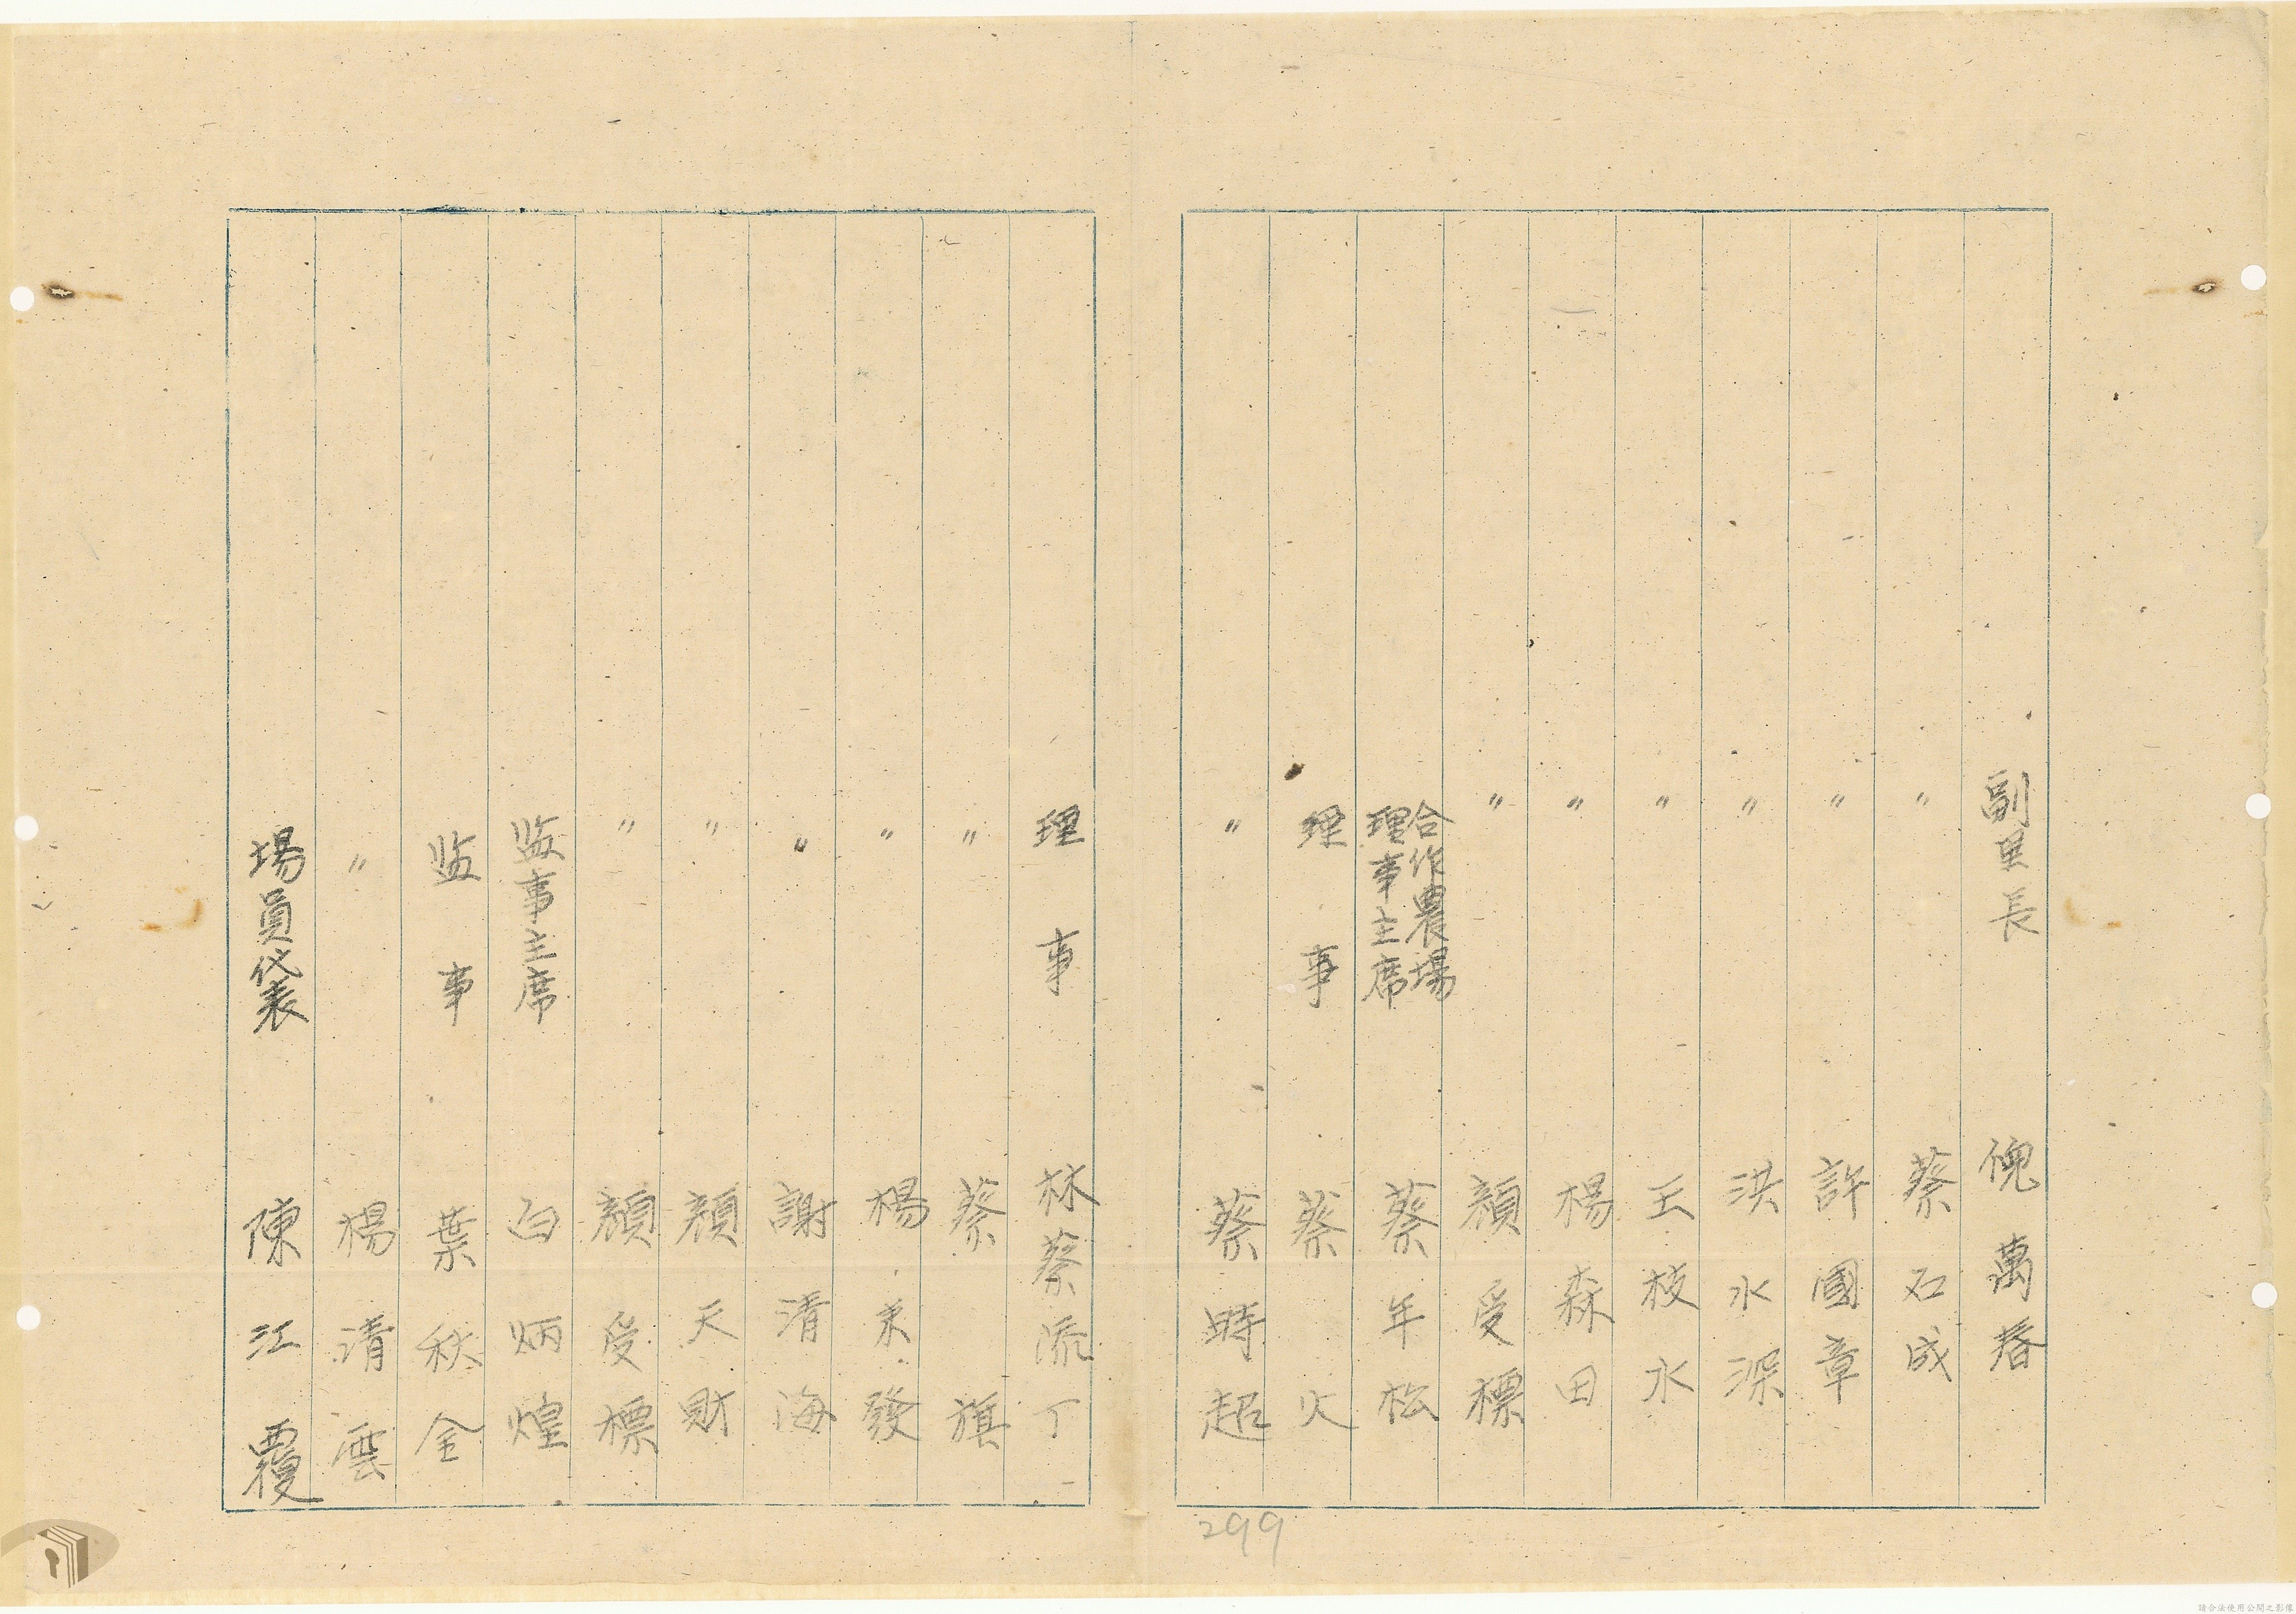 副里長 傀萬春
〃 蔡石成
〃 許國章
〃 洪水深
〃 王枝水
〃 楊森田
〃 顏受標
合作農場
理事主席 蔡年松
理事 蔡火
〃 蔡時超
理事 林蔡流丁
〃 蔡旗
〃 楊來發
〃 謝清海
〃 顏天財
〃 顏受標
监事主席 白炳煌
监事 葉秋金
〃 楊清雲
場員代表 陳江覆
299
請合法使用公開之影像